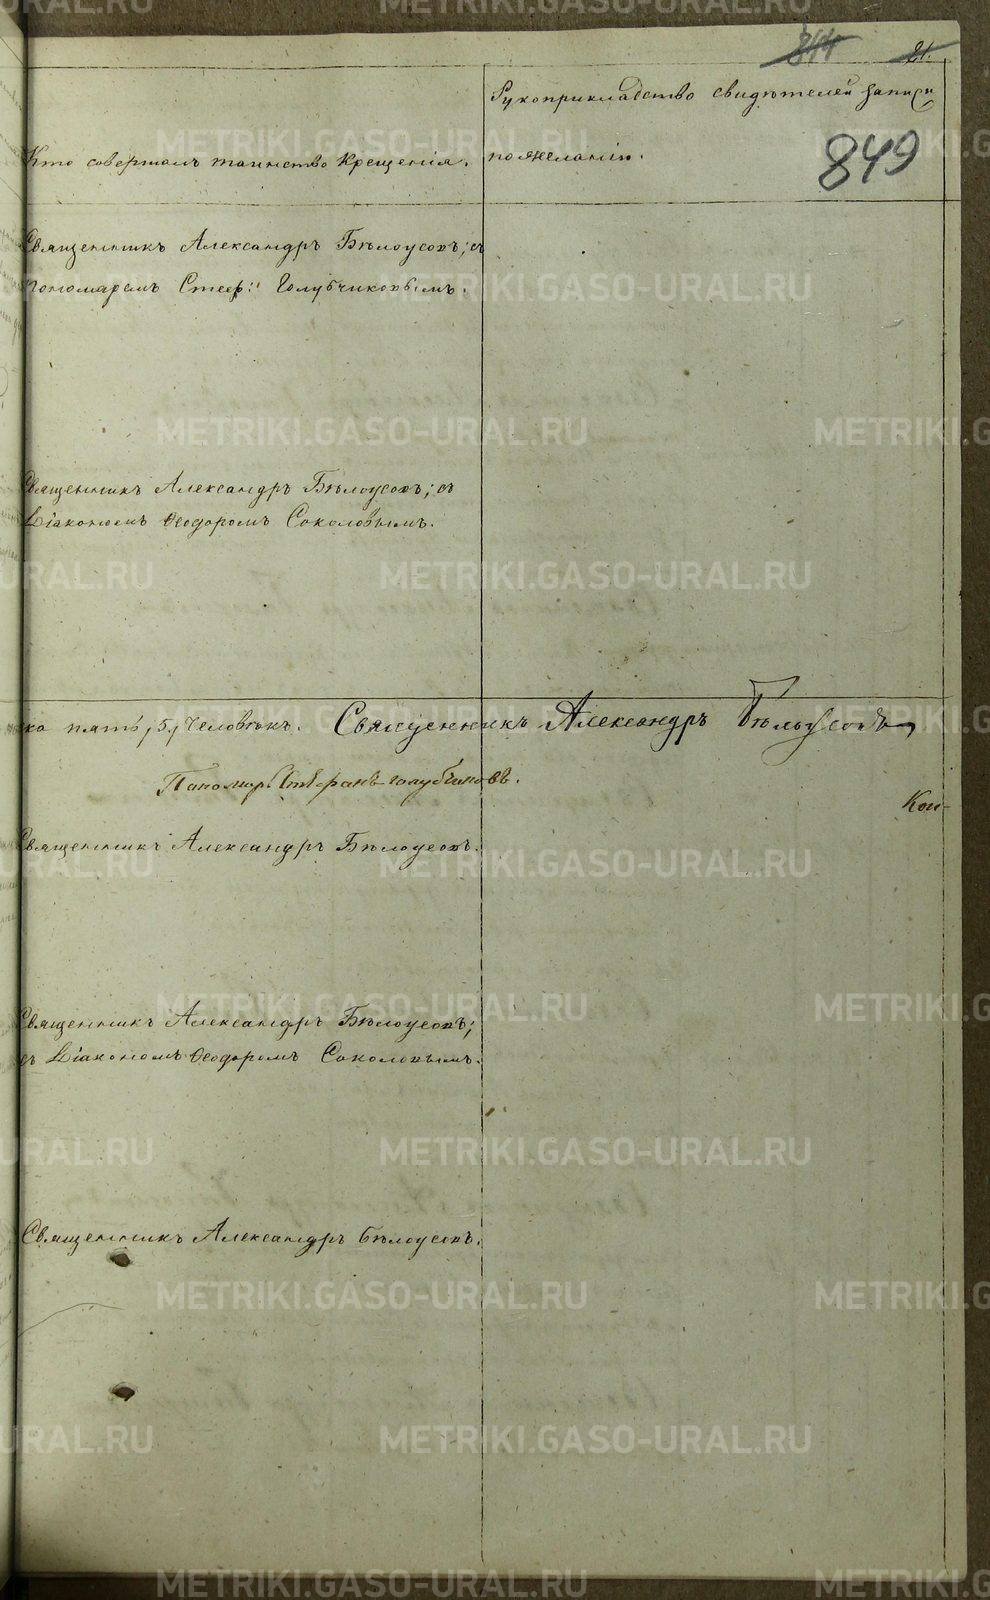 844 21.
849
Рукоприкладство свидѣтелей записи
Кто совершалъ таинство крещенія. по желанію.
Священникъ Александръ Бѣлоусовъ; съ
пономаремъ Стеф: Голубчиковымъ.
Священникъ Александръ Бѣлоусовъ; съ
Діакономъ Ѳеодоромъ Соколовымъ.
пять /5/ человѣкъ. Священникъ Александръ Бѣлоусовъ
Паномарь Стефанъ голубчиковъ.
Кол-
Священникъ Александръ Бѣлоусовъ.
Священникъ Александръ Бѣлоусовъ;
съ Діакономъ Ѳеодоромъ Соколовымъ.
Священникъ Александръ Бѣлоусовъ.
METRIKI.GASO-URAL.RU